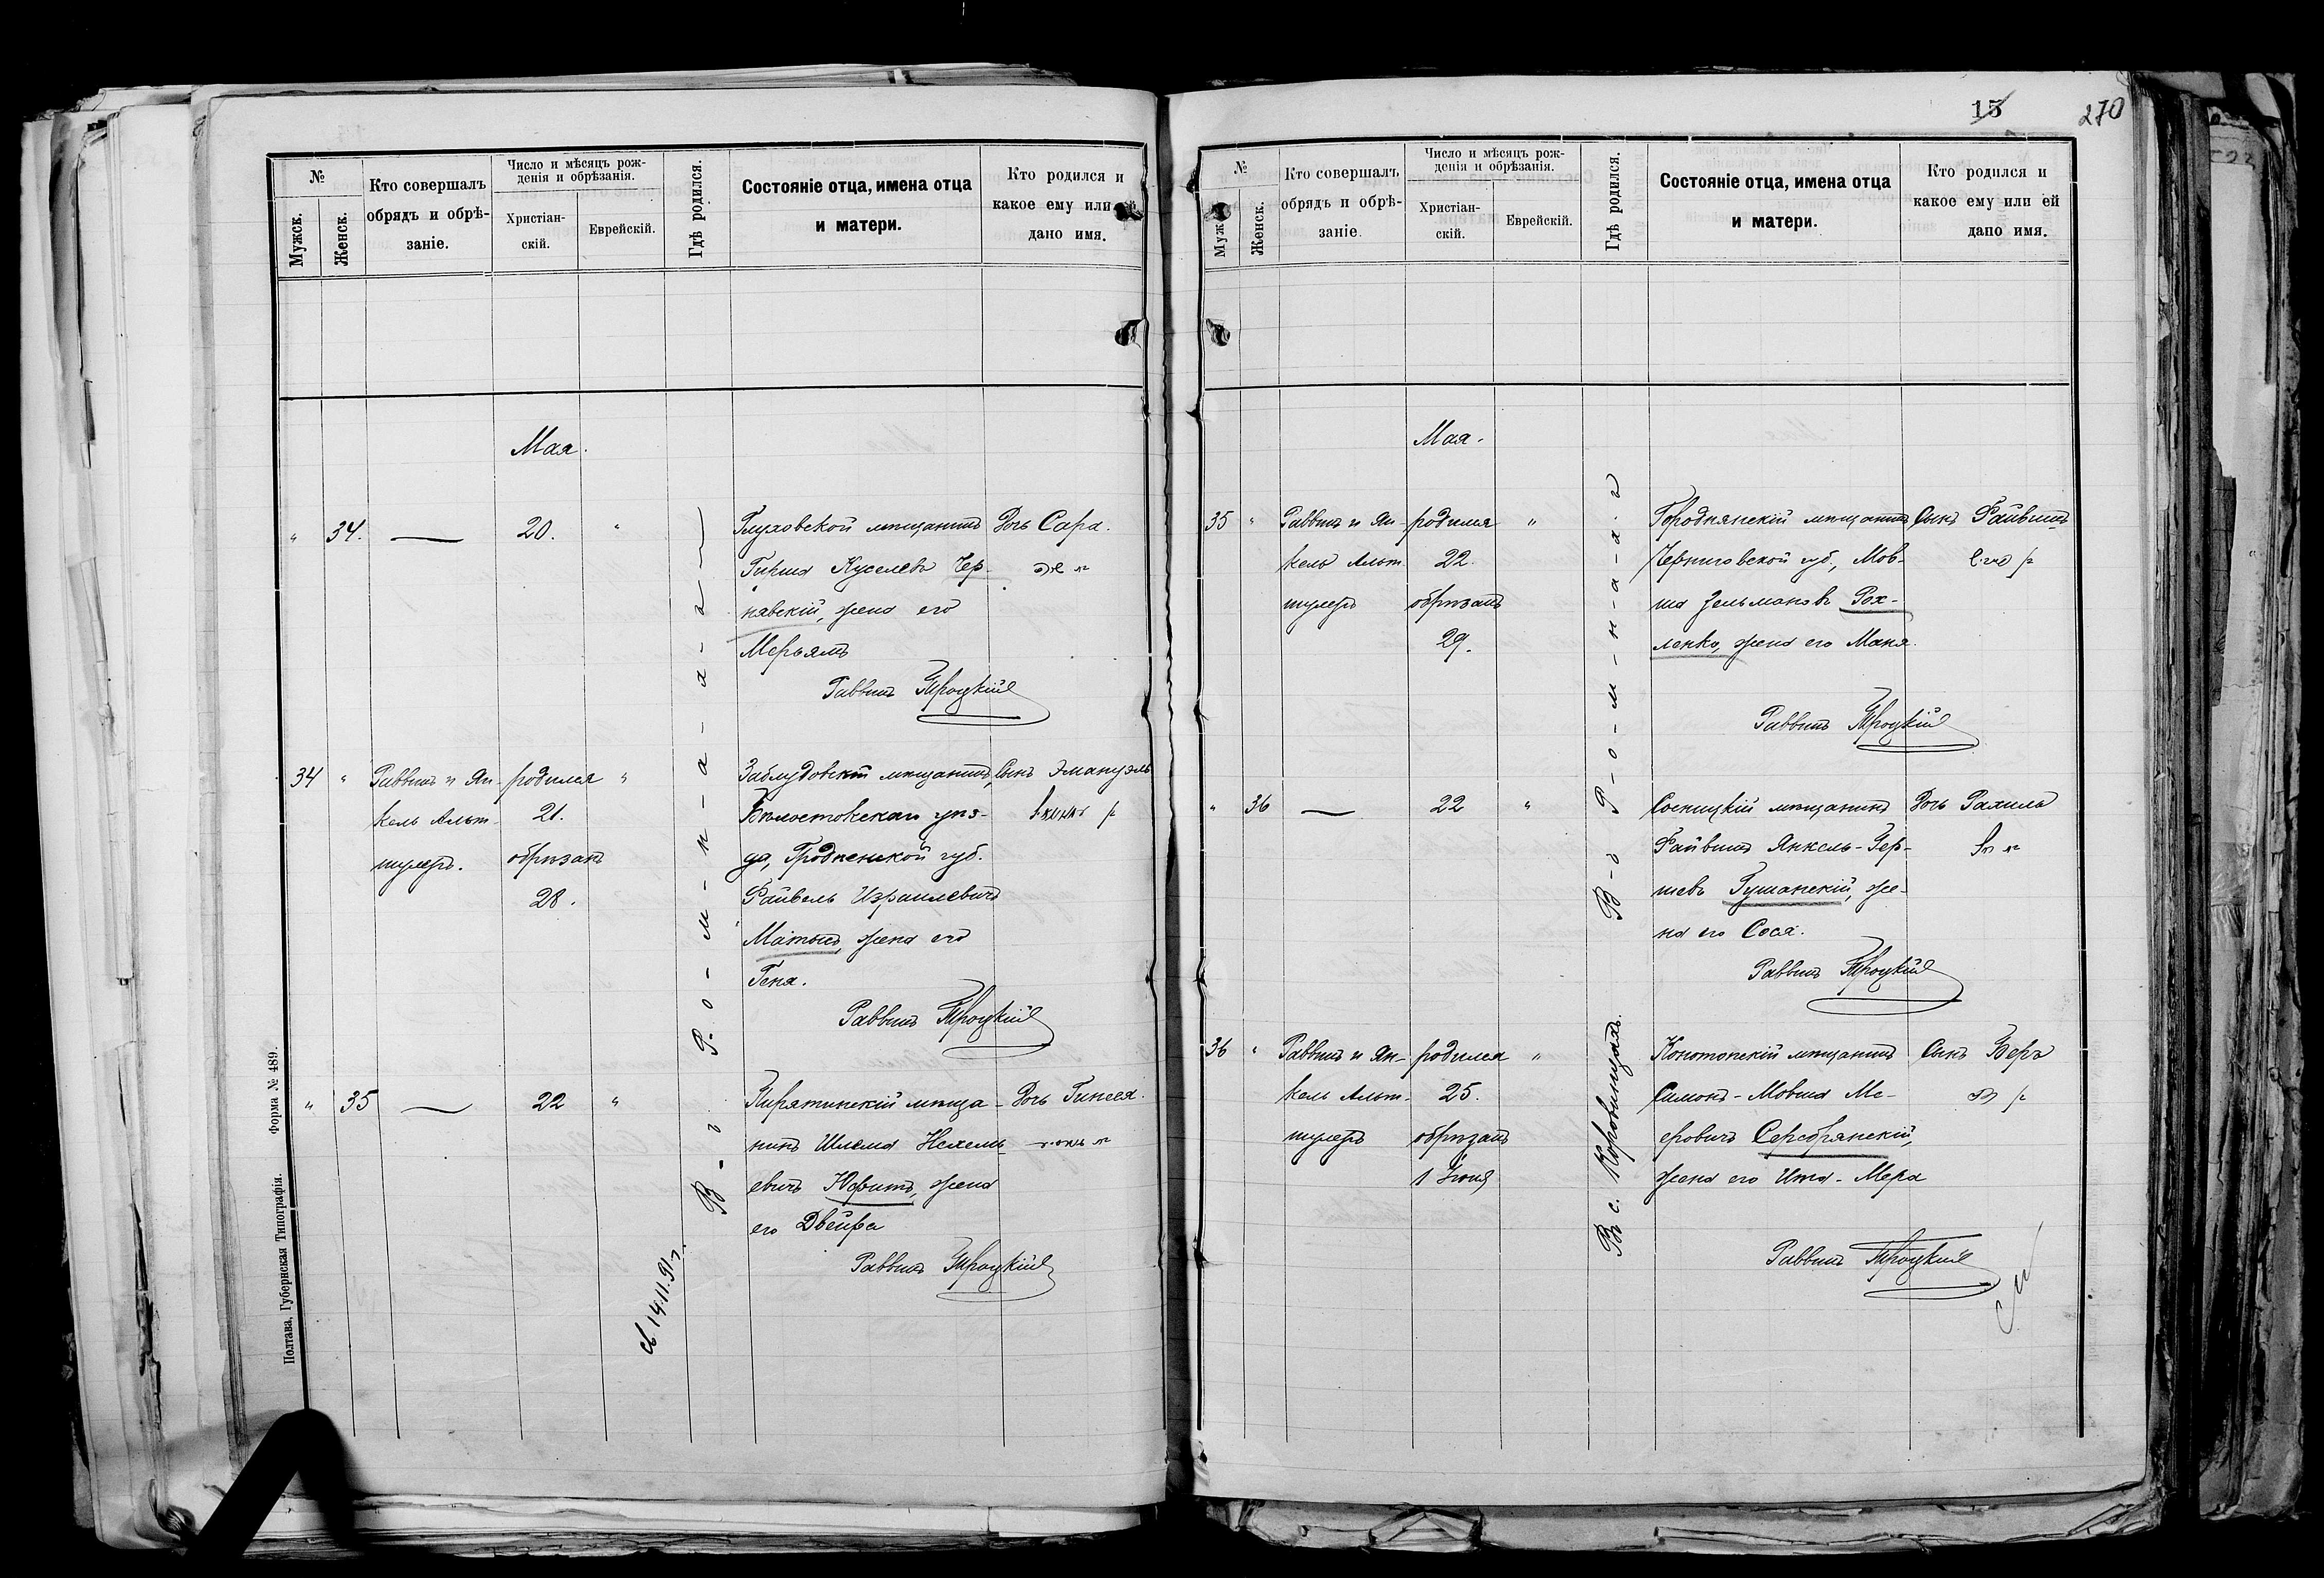 №
Мужск.
Женск.
Кто совершалъ
обрядъ и обрѣ-
заніе.
Число и мѣсяцъ рож-
денія и обрѣзанія.
Христіан-
скій.
Еврейскій.
Гдѣ родился.
Состояніе отца, имена отца
и матери.
Кто родился и
какое ему или
дано имя.
Мая.
" 34. — 20. "
Глуховской мѣщанинъ
Гирша Куселевъ Чер-
нявскій, жена его
Мерьямъ
Раввинъ Троцкій
Дочь Сара.
34 "
Раввинъ и Ян-
кель Альт-
шулеръ.
родился "
21.
обрѣзанъ
28.
Заблудовскій мѣщанинъ,
Бѣлостокскаго уѣз-
да, Гродненской губ.
Файвель Израилевичъ
жена его
Геня.
Раввинъ Троцкій
Сынъ Эмануэль
" 35 — 22 "
Пирятинскій мѣща-
нинъ Шлема
евичъ жена
его Двейра
Раввинъ Троцкій
Дочь
В-ъ Р-о-м-н-а-х-ъ
14.11.91 г.
Форма № 489.
Полтава, Губернская Типографія.
15
270
№
Муж
Женск.
Кто совершалъ
обрядъ и обрѣ-
заніе.
Число и мѣсяцъ рож-
денія и обрѣзанія.
Христіан-
скій.
Еврейскій.
Гдѣ родился.
Состояніе отца, имена отца
и матери.
Кто родился и
какое ему или ей
дано имя.
Мая.
35 "
Раввинъ и Ян-
кель Альт-
шулеръ
родился "
22.
обрѣзанъ
29.
Городнянскій мѣщанинъ
Черниговской губ., Мов-
ша Зельмановъ Рох-
ленко, жена его Маня.
Раввинъ Троцкій
Сынъ Файвишъ
" 36 — 22 "
Сосницкій мѣщанинъ
Файвишъ Янкель-Гер-
шевъ Гушанскій, же-
на его Сося.
Раввинъ Троцкій
Дочь Рахиль
В-ъ Р-о-м-н-а-х-ъ
36 "
Раввинъ и Ян-
кель Альт-
шулеръ
родился "
25.
обрѣзанъ
1 Іюня
Въ с. Коровинцахъ.
Конотопскій мѣщанинъ
Симонъ-Мовша Ме-
еровичъ Серебрянскій,
жена его Ита-Мера
Раввинъ Троцкій
Сынъ Беръ